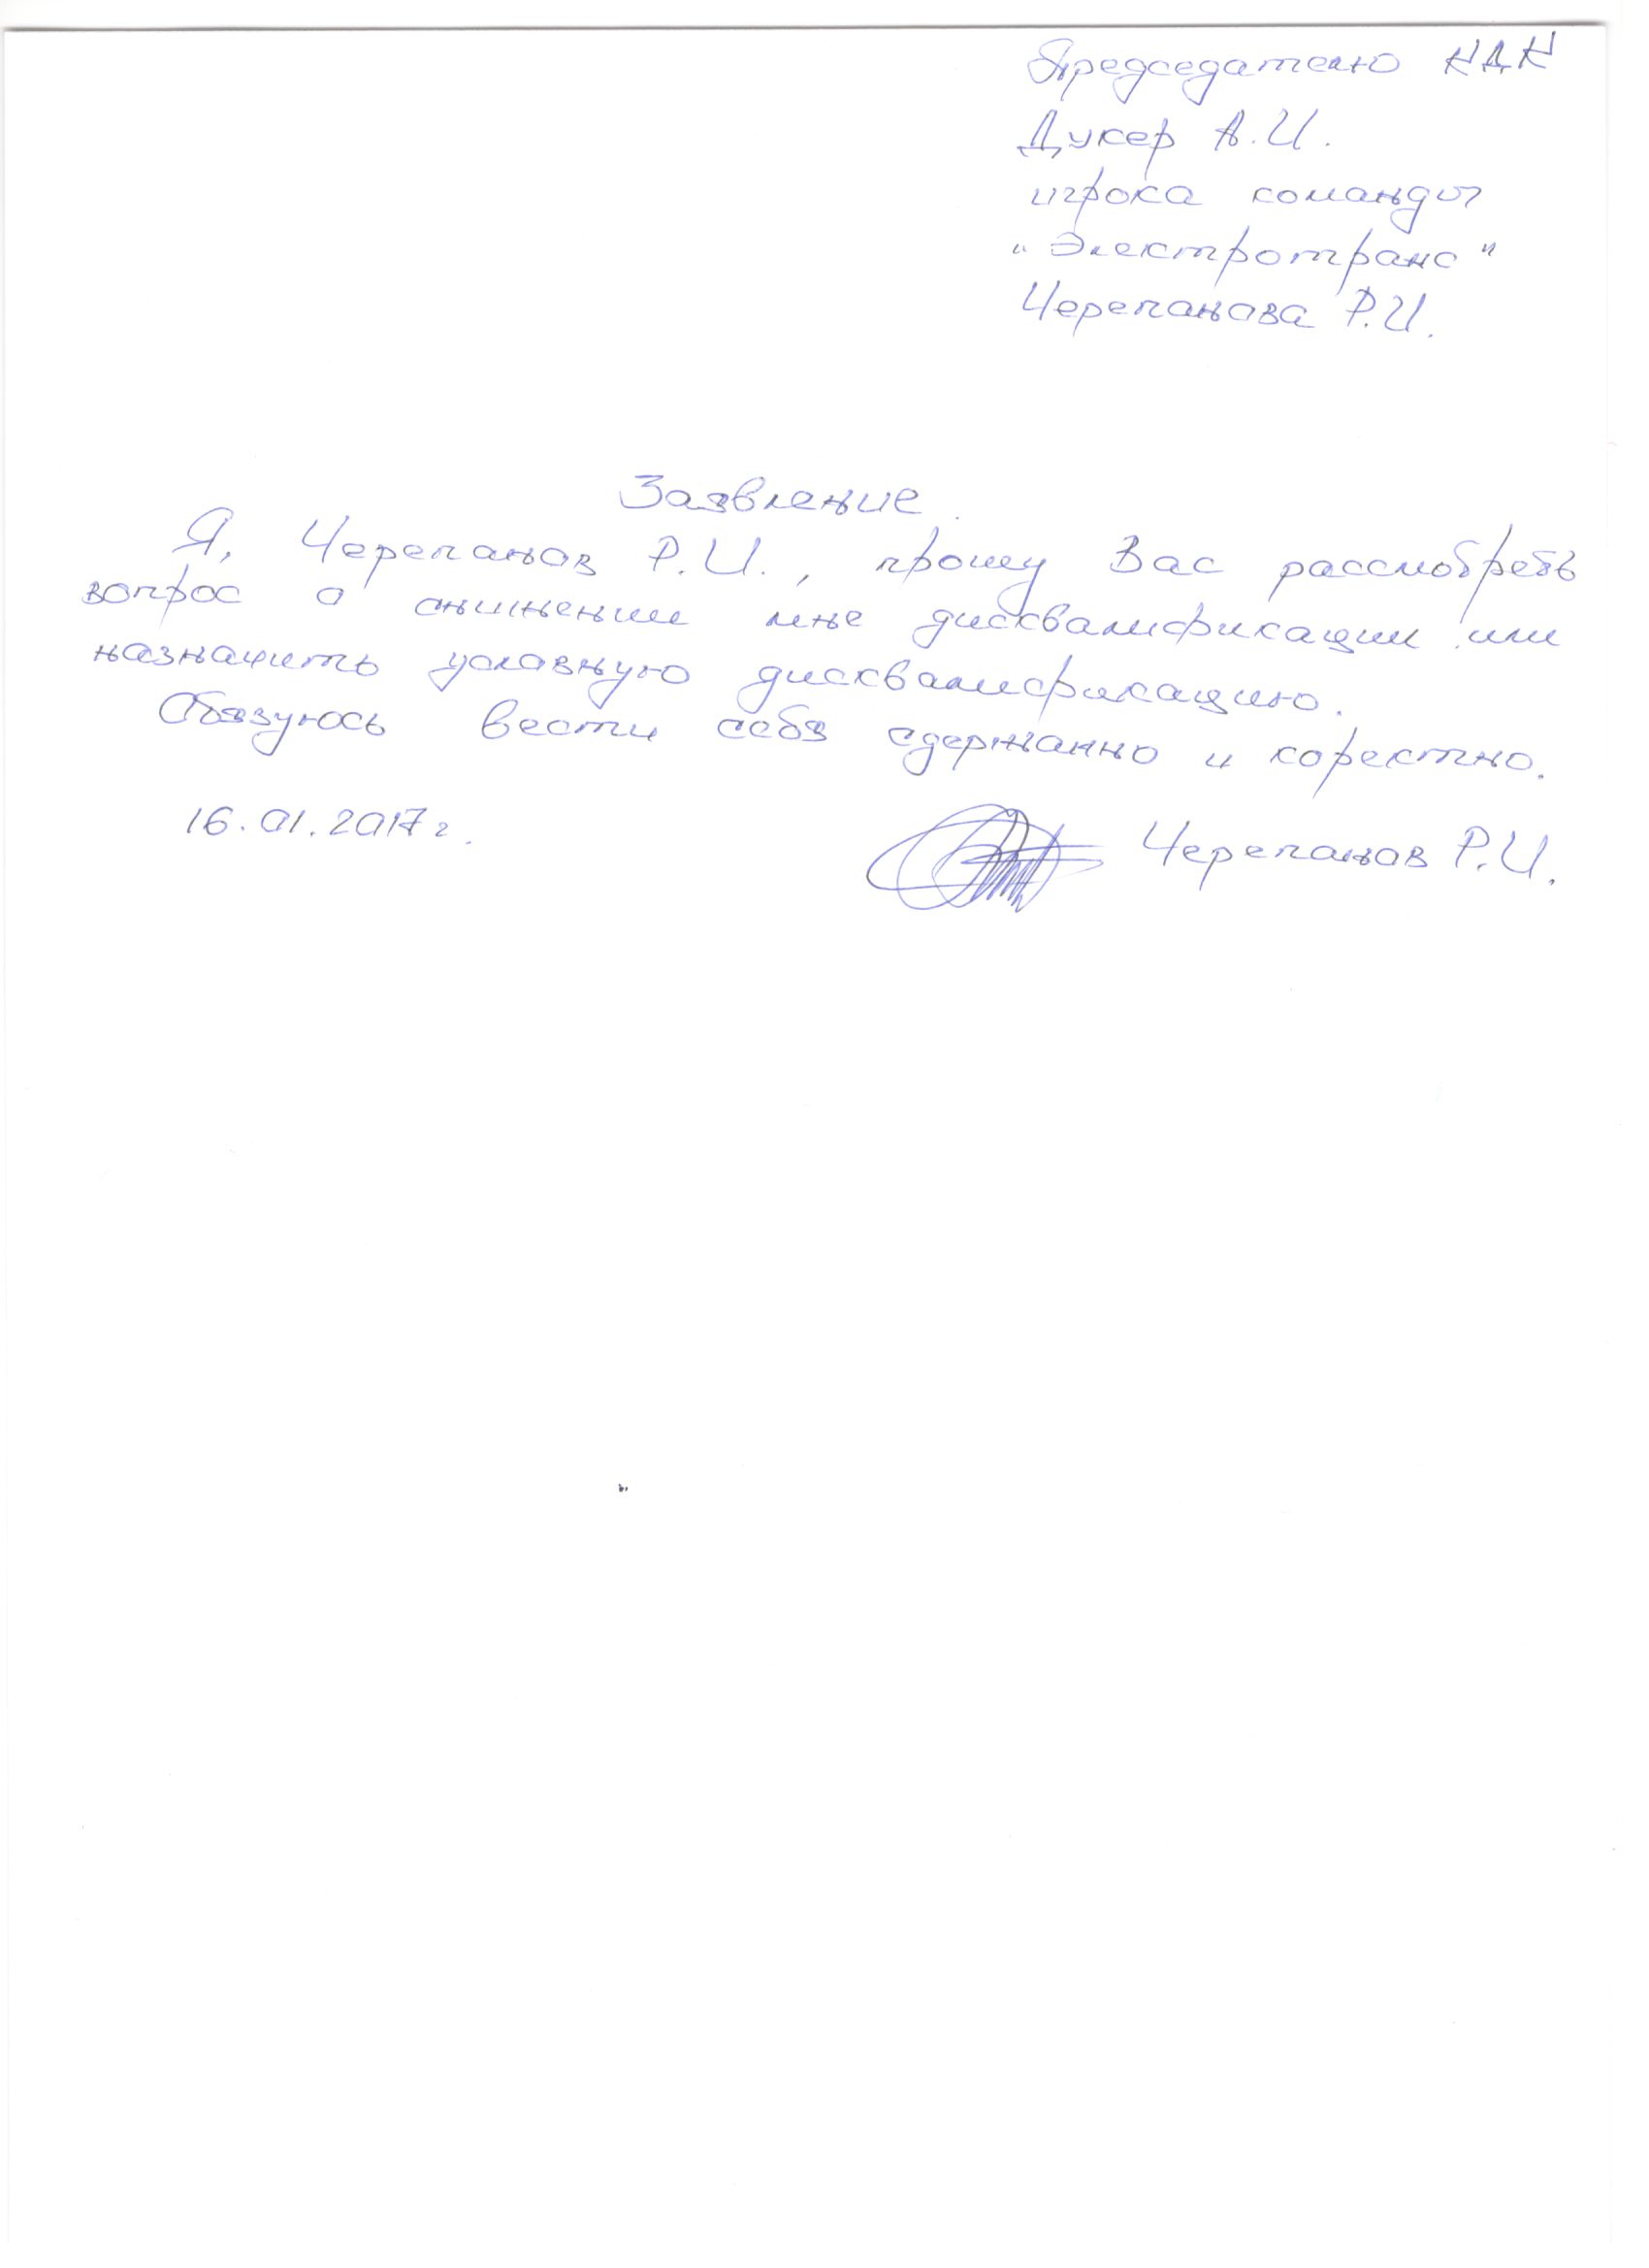 Председателю КДК
Дукер А.И.
игрока команды
"Электротранс"
Черепанова Р.И.
Заявление.
Я, Черепанов Р.И., прошу Вас рассмотреть
вопрос о мне дисквалификации или
назначить условную дисквалификацию.
Обязуюсь вести себя сдержанно и коректно.
16.01.2017г.
Черепанов Р.И.